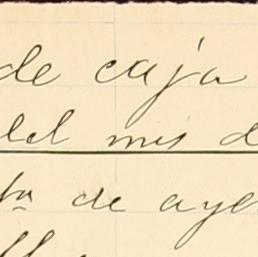 de caja
del mis d
ta de aye